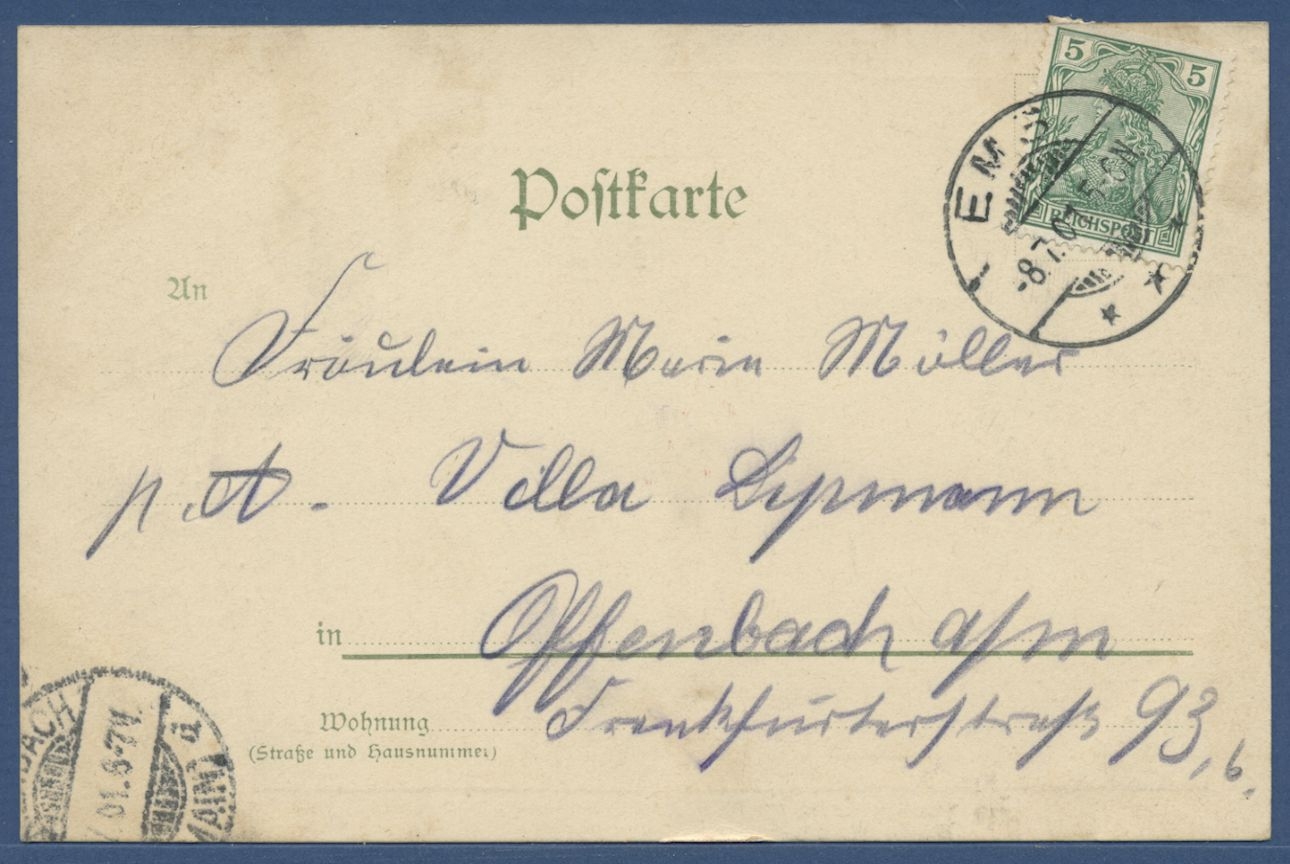 5 5
REICHSPOST
EMS
-8.7.01 5-6N.
Postkarte
An
Fräulein Marie Möller
p. A. Villa Lipmann
in Offenbach a/m
Wohnung Frankfurterstraße 93, b.
(Straße und Hausnummer)
BACH a
.01.6-7N.
MAIN